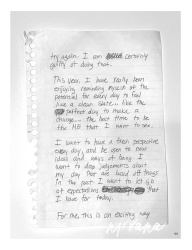 try again. I am certainly
guilty of doing that.
This year, I have really been
enjoying reminding myself of the
potential for every day to feel
like a clean slate... like the
perfect day to make a
change... the best time to be
the ME that I want to see.
I want to have a then perspective
every day, and be open to new
ideas and ways of being. I
want to drop judgements about
my day that are based off things
in the past. I want to let go
of expectations that
I have for today.
For me, this is an exciting way